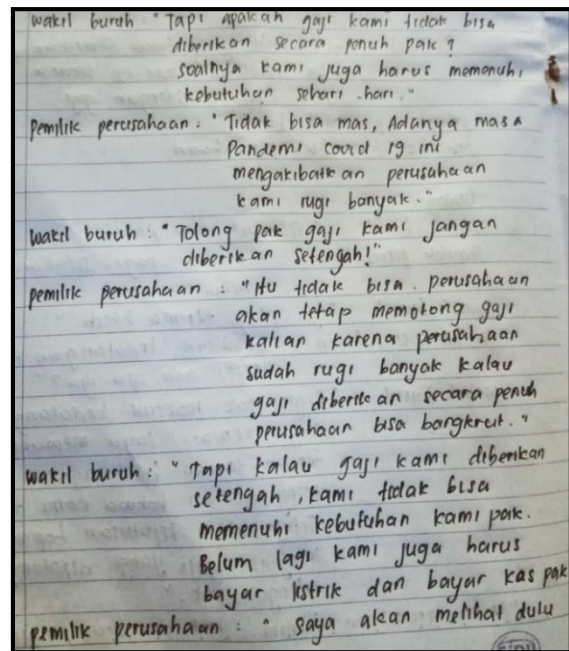 wakil buruh : "Tapi apakah gaji kami tidak bisa
diberikan secara penuh pak ?
soalnya kami juga harus memenuhi
kebutuhan sehari-hari."
Pemilik perusahaan : "Tidak bisa mas, Adanya masa
Pandemi covid 19 ini
mengakibatkan perusahaan
kami rugi banyak."
wakil buruh : "Tolong pak gaji kami jangan
diberikan setengah!"
pemilik perusahaan : "Itu tidak bisa. perusahaan
akan tetap memotong gaji
kalian karena perusahaan
sudah rugi banyak kalau
gaji diberikan secara penuh
perusahaan bisa bangkrut."
wakil buruh : "Tapi kalau gaji kami diberikan
setengah, kami tidak bisa
memenuhi kebutuhan kami pak.
Belum lagi kami juga harus
bayar listrik dan bayar kas pak
pemilik perusahaan : "saya akan melihat dulu